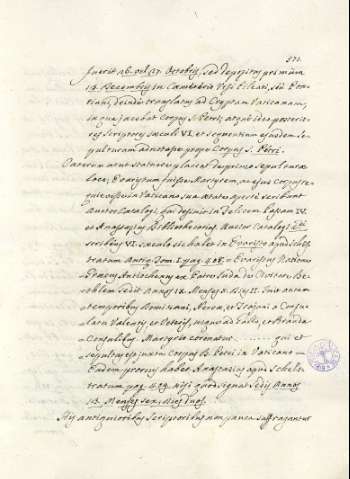 371.
fuerit 26. vel 27. Octobris, sed depositus primum
14. Decembris in Cœmeterio
deinde translatus ad Cryptam Vaticanam,
in qua jacebat Corpus S. Petri, atque ideo posterio-
res Scriptores sæculi VI. et sequentium ejusdem se-
pulturam adnotasse prope Corpus S. Petri.
utut statuere placeat de primo sepulturæ
loco, Evaristum fuisse Martyrem, ac ejus Corpus
in Vaticano, sua ætate aperte scribunt
Auctor Catalogi, qui desinit in Felicem Papam IV.
et Anastasius Bibliothecarius. Auctor Catalogi
scribens VI. sæculo sic habet in Evaristo apud Schel-
stratum Antiq. Tom. I. pag. 408. = Evaristus Natione
Græcus Antiochenus ex Patre Juda de Civitate Be-
thlem Sedit Annos IX. Menses X. Dies II. Fuit autem
temporibus Domitiani, Nervæ, et Trajani a Consu-
latu Valentis, et Veteris, usque ad Gallo, et Bradua
Consulibus. Martyrio coronatur ......... qui et
sepultus est juxta Corpus B. Petri in Vaticano =
Eadem prorsus habet Anastasius apud Schels-
tratum pag. 409. nisi quod signat Sedis Annos
13. Menses sex, Dies duos.
His antiquioribus Scriptoribus non pauca suffragantur